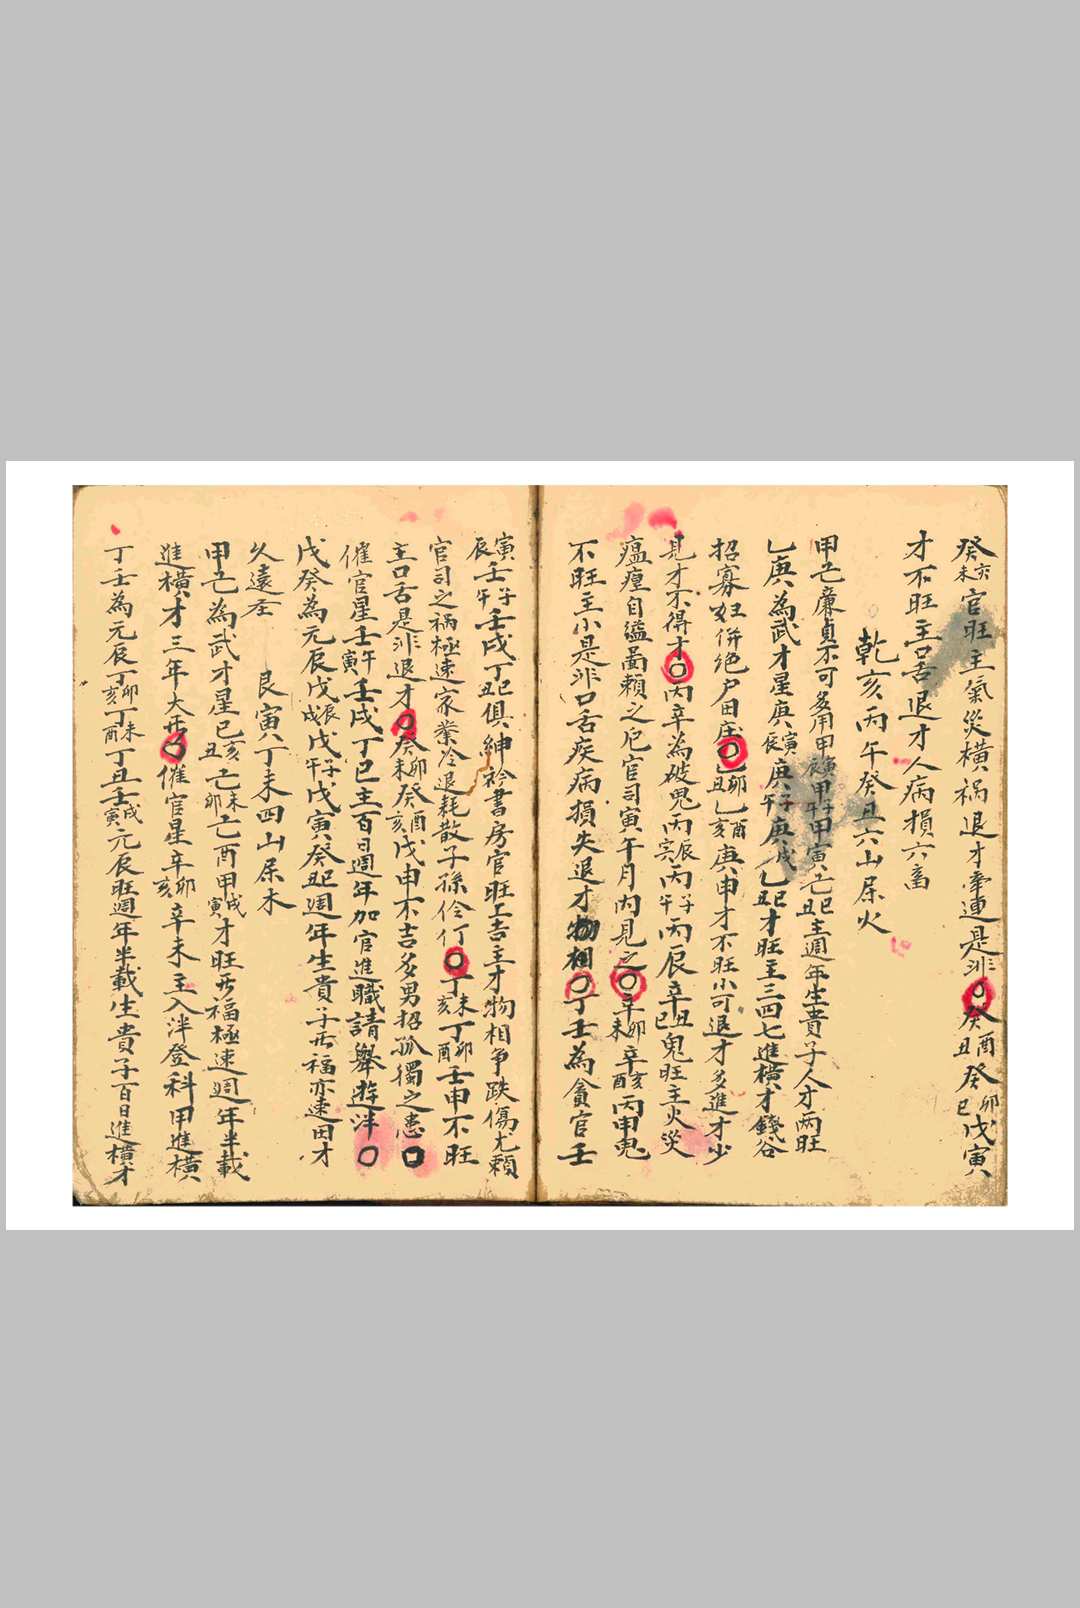 癸亥未官旺主氣災橫禍退才牽連是非○癸酉丑癸卯巳戊寅
才不旺主口舌退才人病損六畜
乾亥丙午癸丑六山屎火
甲己廉貞不可多用甲寅辰甲子午甲寅己巳丑主週年生貴子人才兩旺
乙庚為武才星庚寅辰庚子午庚戌乙巳丑才旺主三四七進橫才錢谷
招寡妇併绝户田庄○乙卯丑乙酉亥庚申才不旺小可退才多進才少
見才不得才○丙辛為破鬼丙辰寅丙子午丙辰辛丑巳鬼旺主火災
瘟瘟自缢啚賴之厄官司寅午月内見之○辛卯未辛亥酉丙申鬼
不旺主小是非口舌疾病損失退才物相○丁壬為貪官壬
寅辰壬子午壬戌丁巳丑俱紳衿書房官旺工吉主才物相争跌傷尤賴
官司之祸極速家業冷退耗散子孫伶仃○丁未亥丁卯酉壬申不旺
主口舌是非退才○癸卯未癸酉亥戊申不吉多男招孤獨之患○
催官星壬午寅壬戌丁巳主百日週年加官進職請舉遊泮○
戊癸為元辰戊辰戌戊子午戊寅癸巳丑週年生貴子發福亦速田才
久遠至
艮寅丁未四山屎木
甲己為武才星己亥丑己未卯己酉甲戌寅才旺發福極速週年半載
進橫才三年大發○催官星辛卯亥辛未主入泮登科甲進橫
丁壬為元辰丁卯亥丁未酉丁丑壬戌寅元辰旺週年半載生貴子百日進橫才